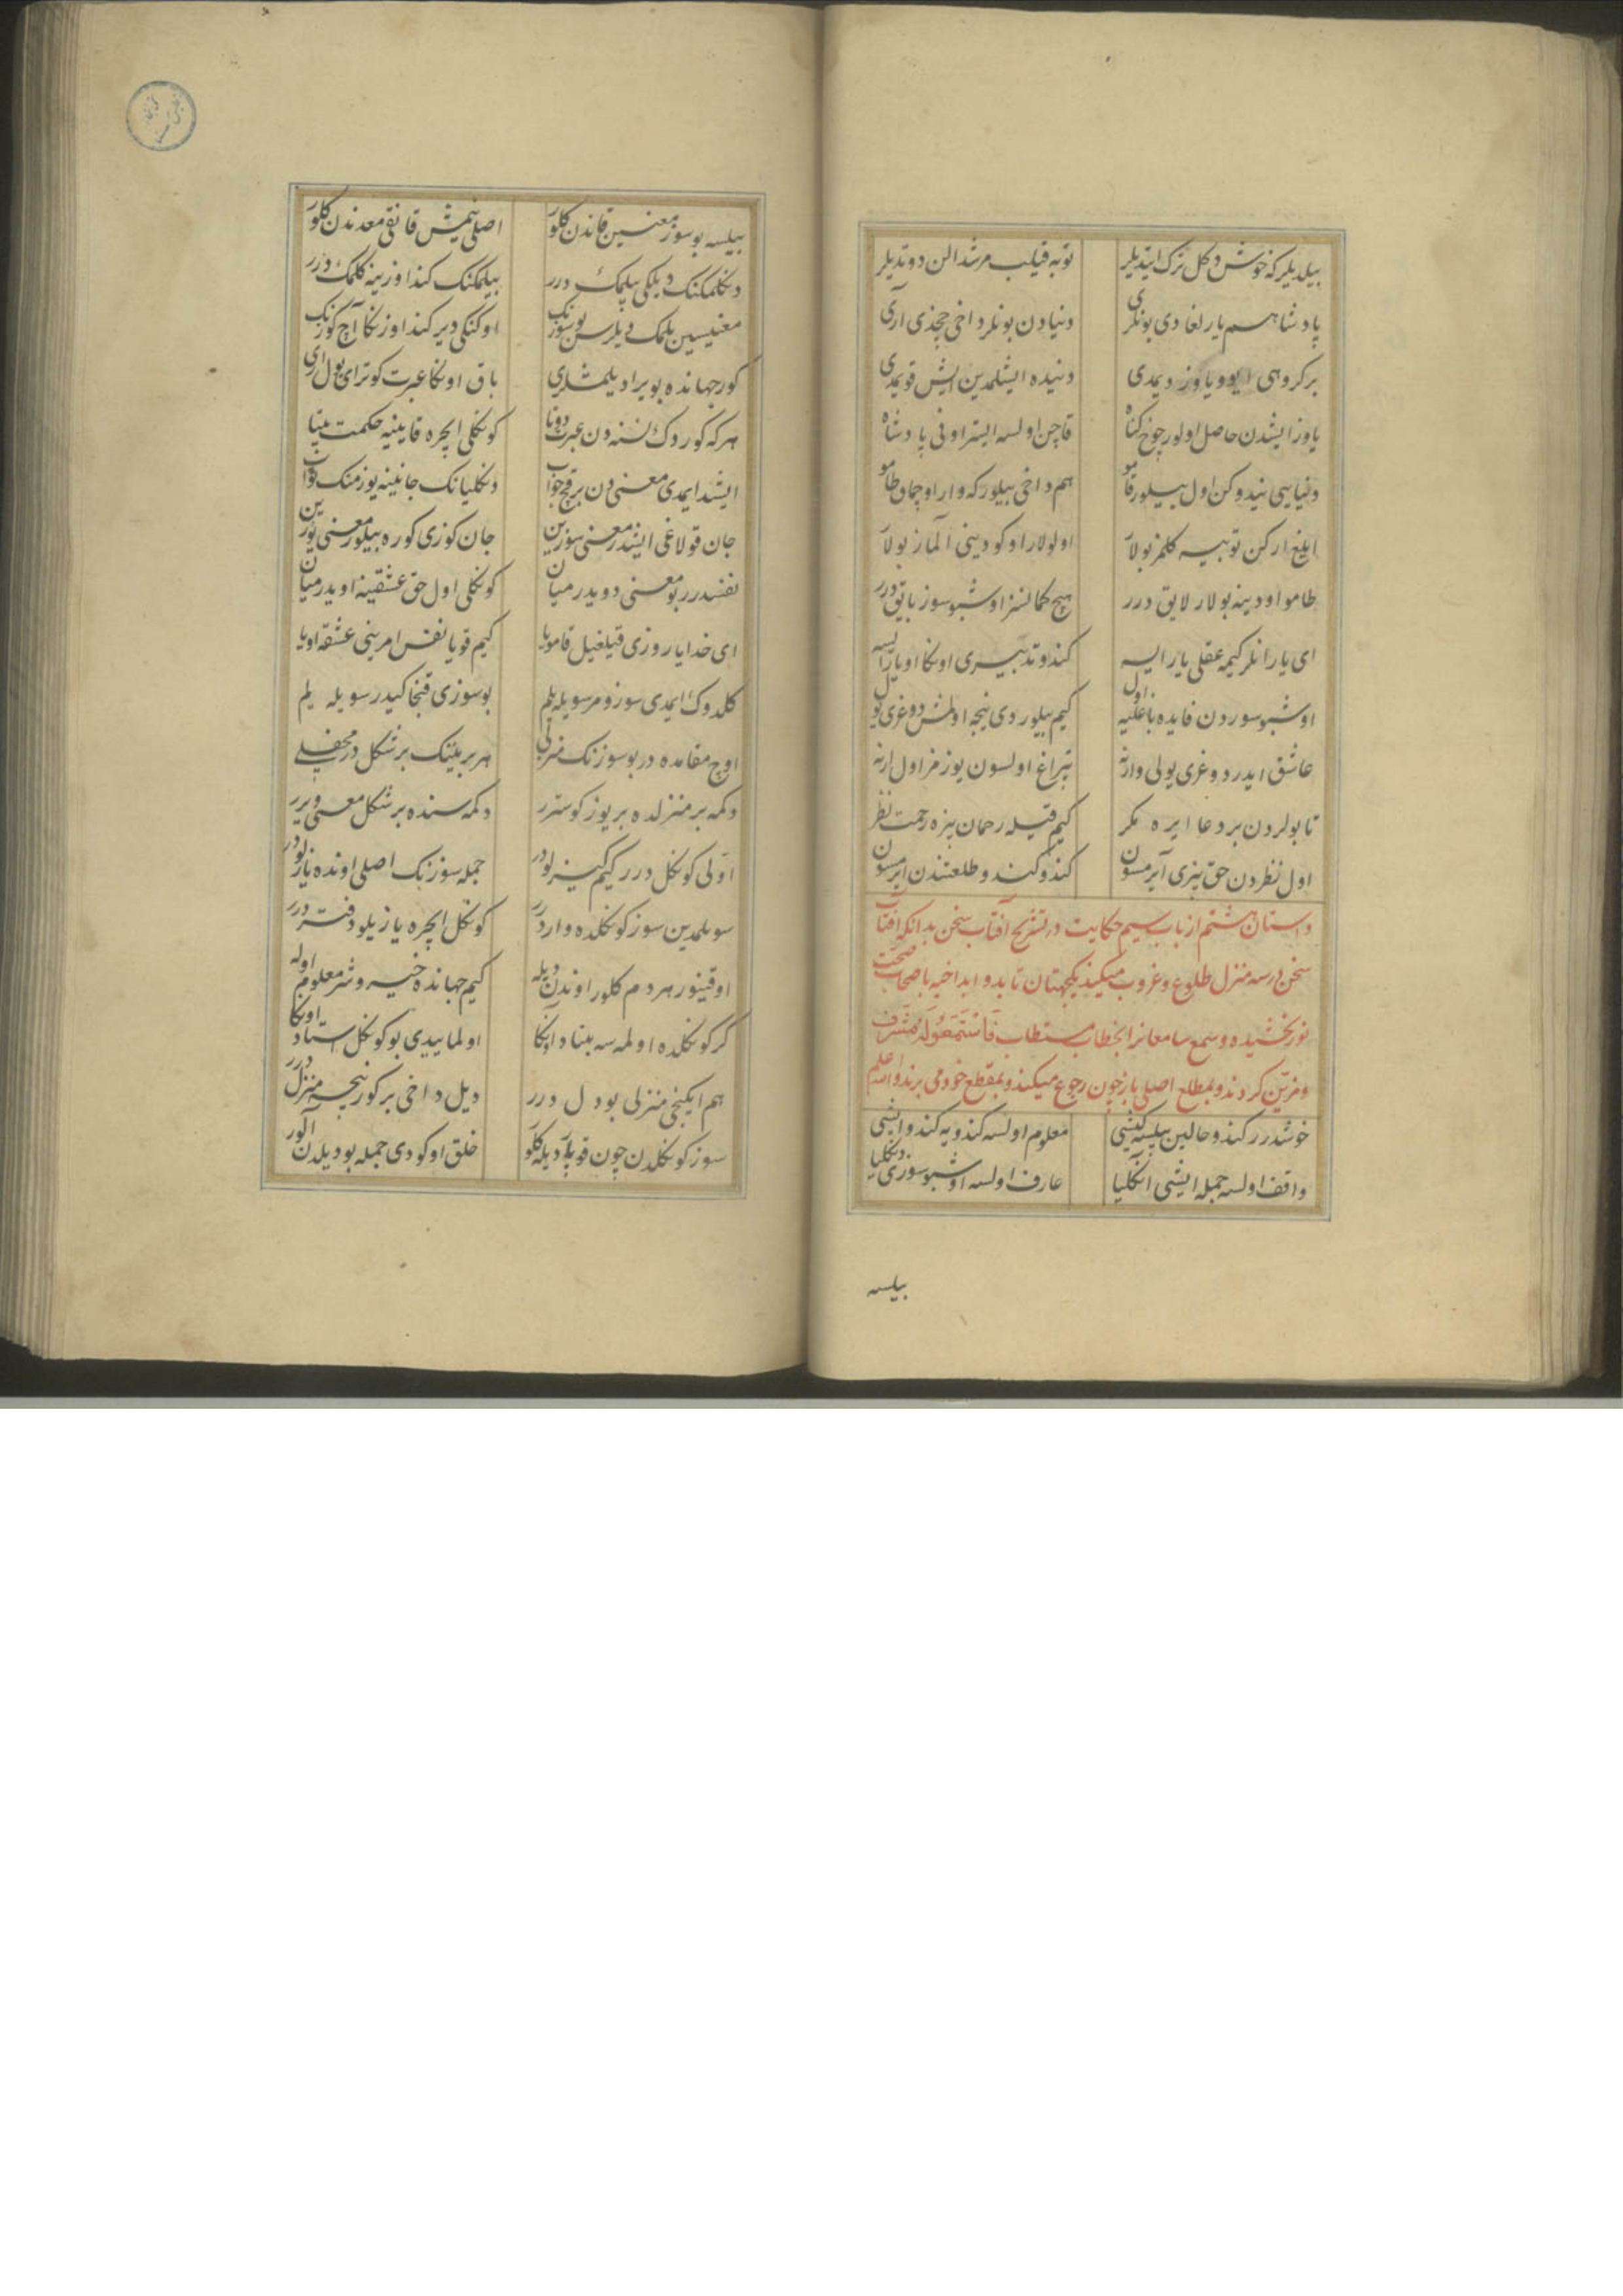 بیلدیلر که خوش دکل ترک ایتدیلر توبه قیلب مرشد الن دوتدیلر
پادشاهم یارلغادی بونلری دنیادن بونلر داخی چخدی آری
بر کروهی ایو و یاوز دیمدی دنیده ایشلمدین ایش قویمدی
یاوز ایشدن حاصل اولور چوخ کناه قاچن اولسه ایستر اونی پادشاه
دنیاییی نیدوکن اول بیلور قامو هم داخی بیلور که وار اوچماق طامو
ایلغ ارکن توبیه کلمز بولار اولولار اوکودینی آلماز بولار
طامو اودینه بولار لایق درر هیچ کمانسز اوشبو سوز بایق درر
ای یارانلر کیمه عقلی یار ایسه کندو تدبیری اونکا اویار ایسه
اوشبو سوزدن فایده باغلیه اول کیم بیلوردی نیجه اولمش دوغری یول
عاشق ایدر دوغری یولی وارنه تپراغ اولسون یوزمز اول ارنه
تابولردن بر دعا ایره مکر کیم قیله رحمان بزه رحمت نظر
اول نظردن حق بیزی آیرمسون کندو کندو طلعتندن ایرمسون
داستان هشتم از باب سیم حکایت در تشریح آفتاب سخن بدانکه افتاب
سخن در سه منزل طلوع و غروب میکیند یکجهتان تابد و ابدا خیه باصحاب صحت
نور بخشیده و سمع سامعانرا بخطاب مستطاب فَاسْتَمِعُوا لَهُ مشرف
و مزین کردند و بمطلع اصلی باز چون رجوع میکیند و بمقطع خود می برند والله اعلم
خوشدرر کندو حالین بیلسه کیشی معلوم اولسه کندویه کندو ایشی
واقف اولسه جمله ایشی انکلیا عارف اولسه اوشبو سوزی دنکلیا
بیلسه
بیلسه بو سوز معنیسین قاندن کلور اصلی نیمش قانقی معدندن کلور
دنکلمکنک دیلکی بیلمک درر بیلمکنک کند اوزینه کلمک درر
معنیسین بیلمک دیلرسن بو سوزنک اوکنکی دیر کند اوزنکا آچ کوزنک
کور جهانده بو یرادیلمشلری باق اونکا عبرت کوتر ای یول اری
هر که کوردک نسنه دن عبرت دوتا کونکلی ایچره قاینیه حکمت بیتا
ایشد ایمدی معنی دن بر قچ جواب دنکلیانک جانینه یوز منک ثواب
جان قولاغی ایشدر معنی سوزین جان کوزی کوره بیلور معنی یوزین
نفسدرر بو معنی دویدرمیان کونکلی اول حق عشقینه اویدرمیان
ای خدایا روزی قیلغیل قامویا کیم قویا نفس امرینی عشقه اویا
کلدوک ایمدی سوز و مز سویله یلم بو سوزی قنجا کیدر سویله یلم
اوچ مقامده در بو سوزنک منزلی هر بر بینک بر شکل در محفلی
دکمه بر منزلده بر یوز کوستر دکمه سنده بر شکل معنی ویرر
اوّلی کونکل درر کیم کیزلودر جمله سوزنک اصلی اونده یازلودر
سویلمدین سوز کونکلده واردرر کونکل ایچره یازیلو دفتر درر
اوقینور هر دم کلور اوندن دیله کیم جهانده خیر و شر معلوم اوله
کر کونکلده اولمه سه بنیاد اونکا اولماییدی بو کونکل استاد اونکا
هم ایکنجی منزلی بو دل درر دیل داخی بر کور نیجه منزل درر
سوز کونکلدن چون قوپار دیله کلور خلق اوکودی جمله بو دیلدن الور